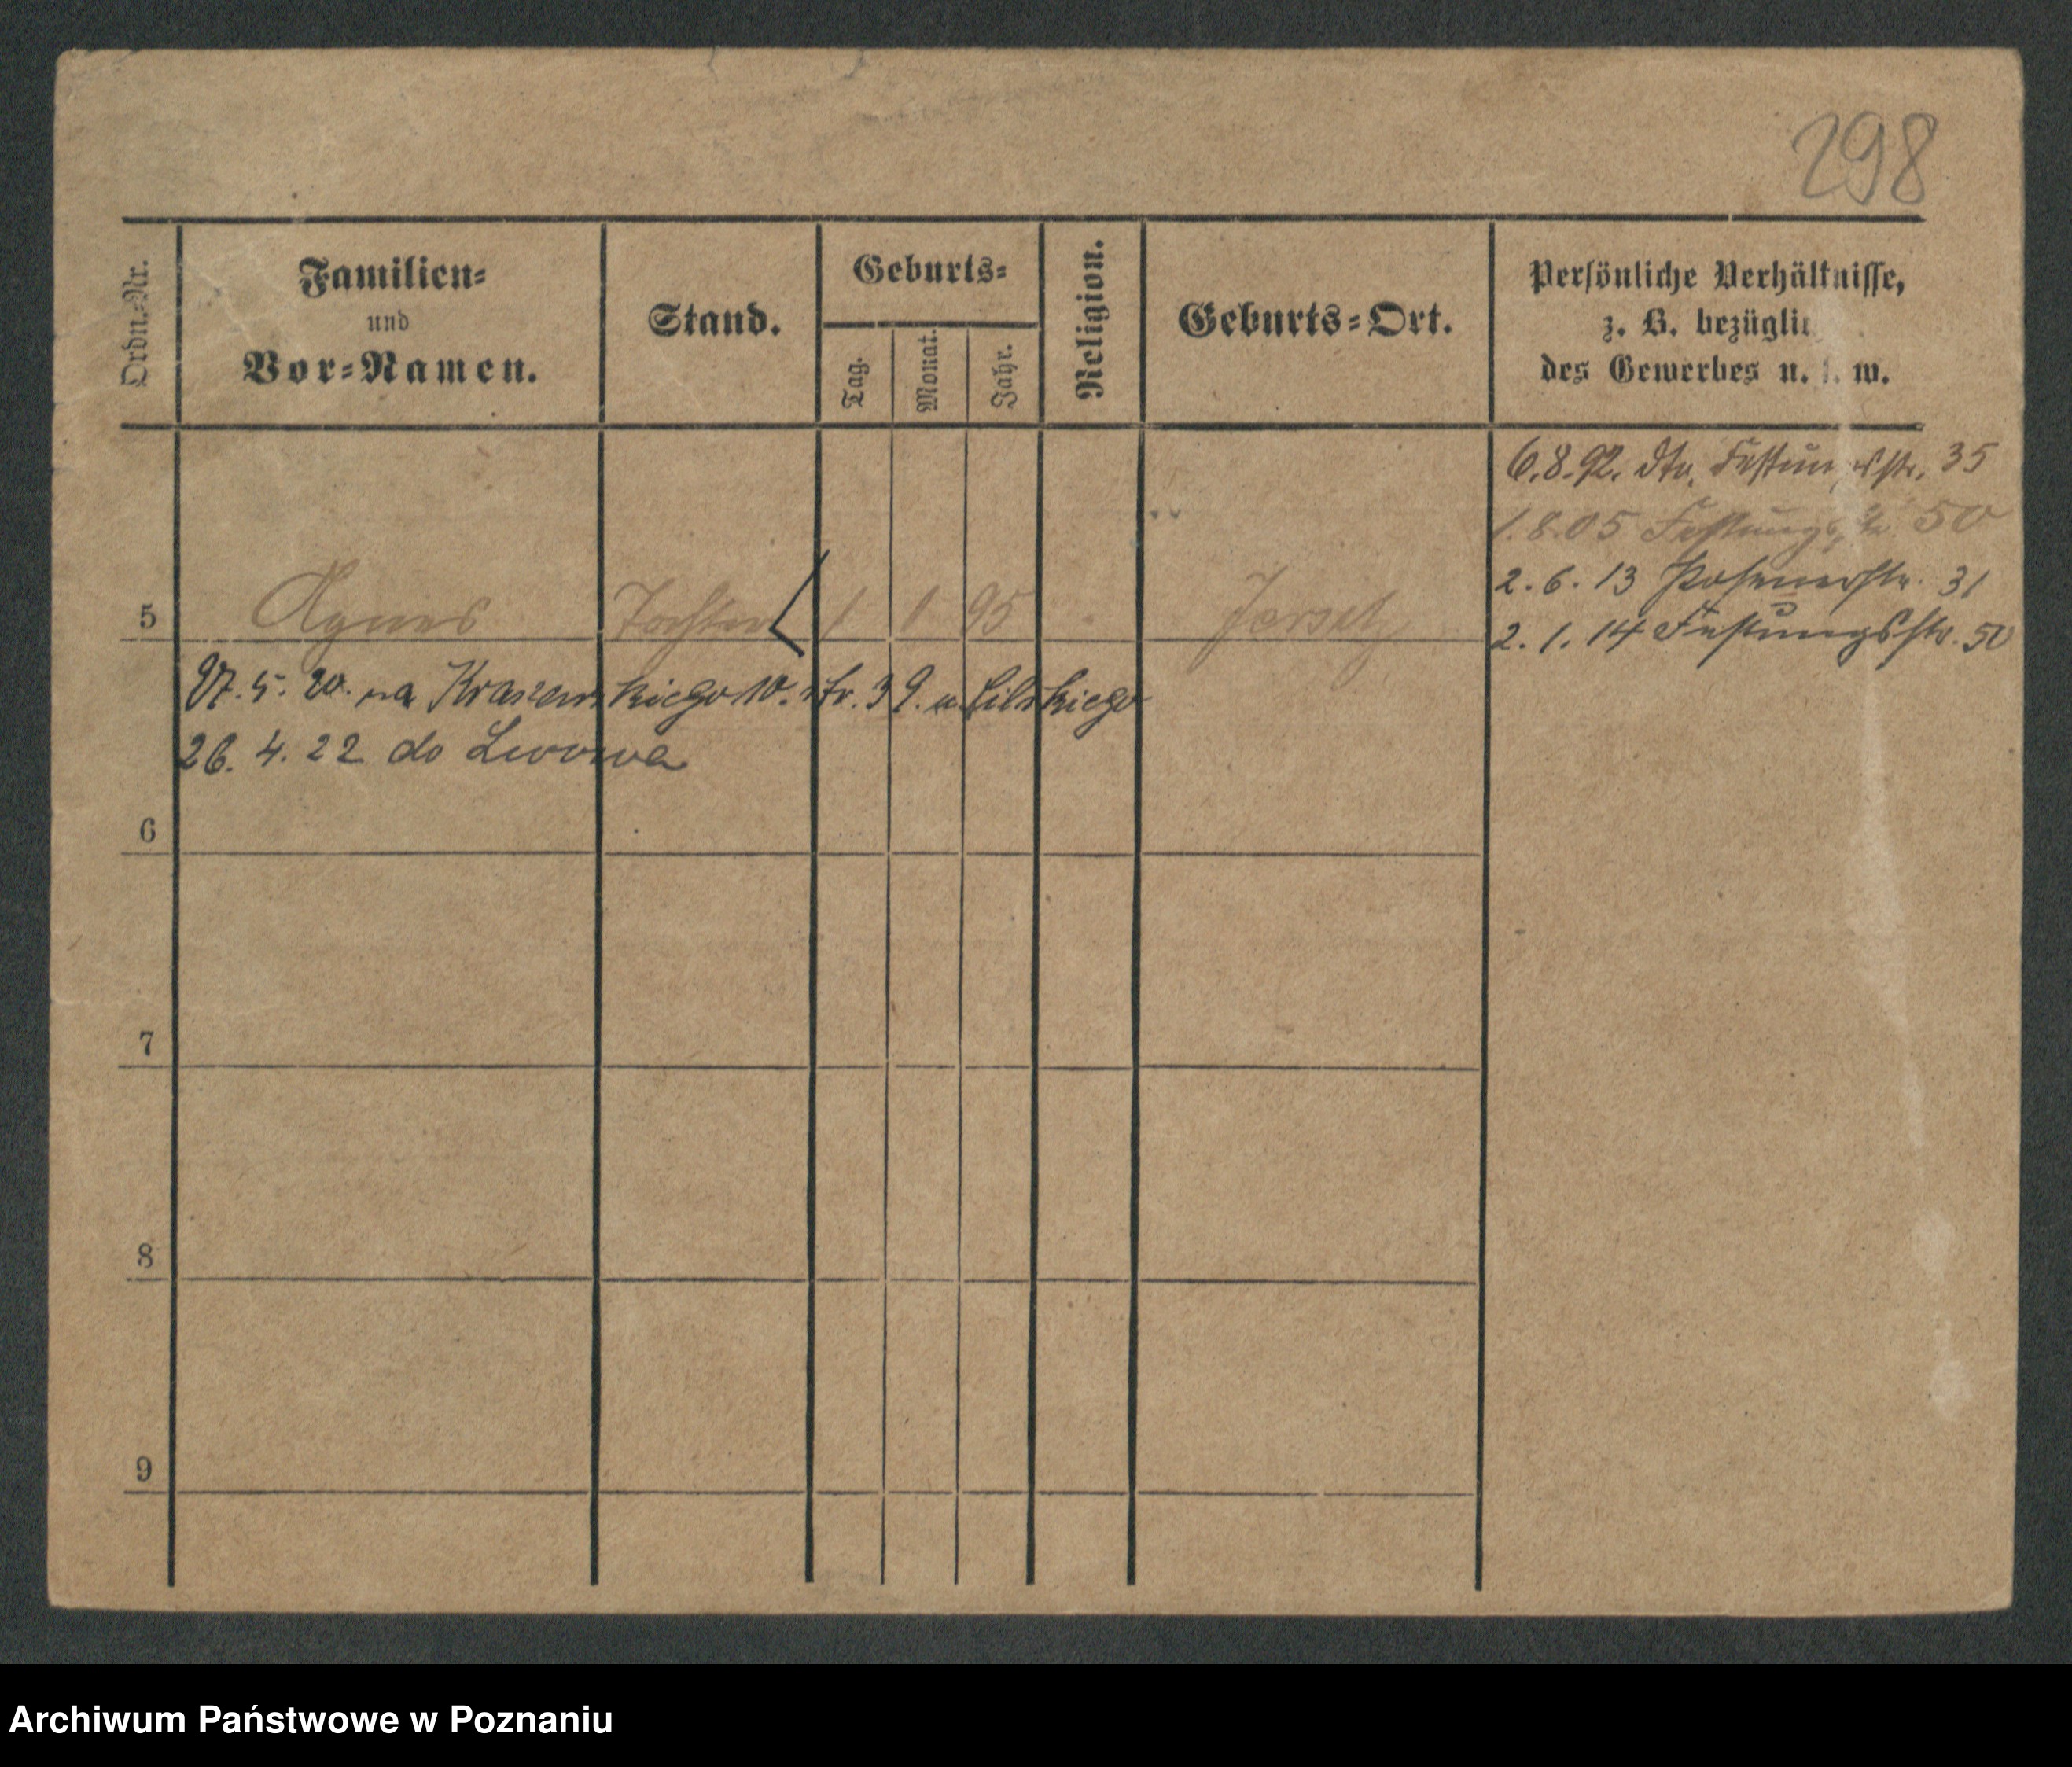 298
Ordn.-Nr.
Familien-
und
Vor-Namen.
Stand.
Geburts-
Tag.
Monat.
Jahr.
Religion.
Geburts-Ort.
Persönliche Verhältnisse,
z. B. bezüglic
des Gewerbes u. s. w.
6.8.92. dto. Festungsstr. 35
1.8.05 Festungsstr. 50
2.6.13 Posenerstr. 31
2.1.14 Festungsstr. 50
5 Agnes Tochter 1 1 95 Jersitz
27.5.20. na Kraszewskiego 10. str. 39. u. kiego
26.4.22 do Lwowa
6
7
8
9
Archiwum Państwowe w Poznaniu